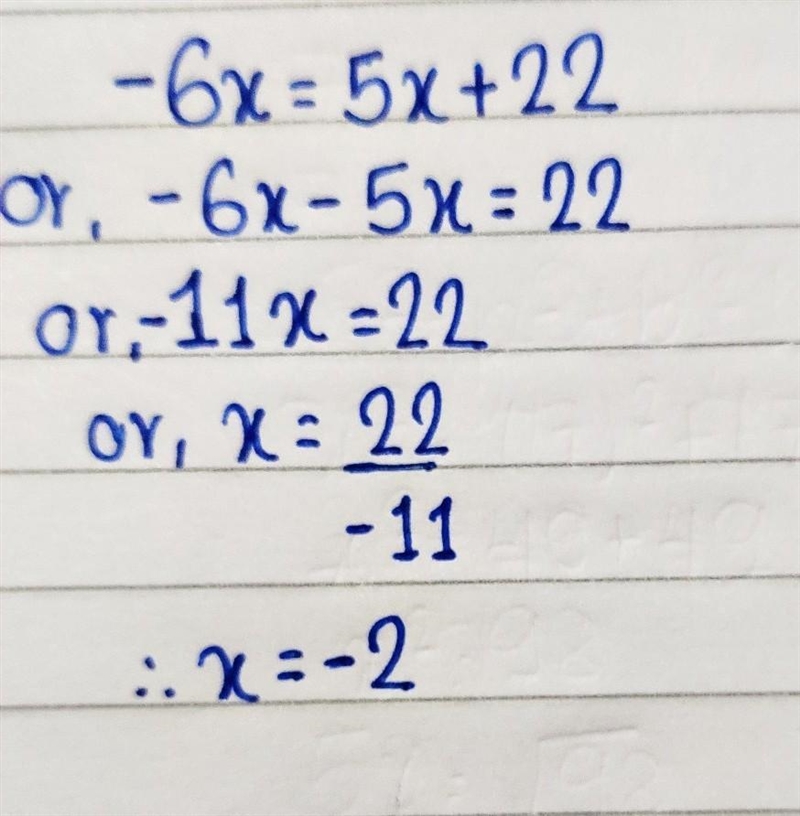 -6x = 5x + 22
or, -6x - 5x = 22
or, -11x = 22
or, x = 22
-11
∴ x = -2